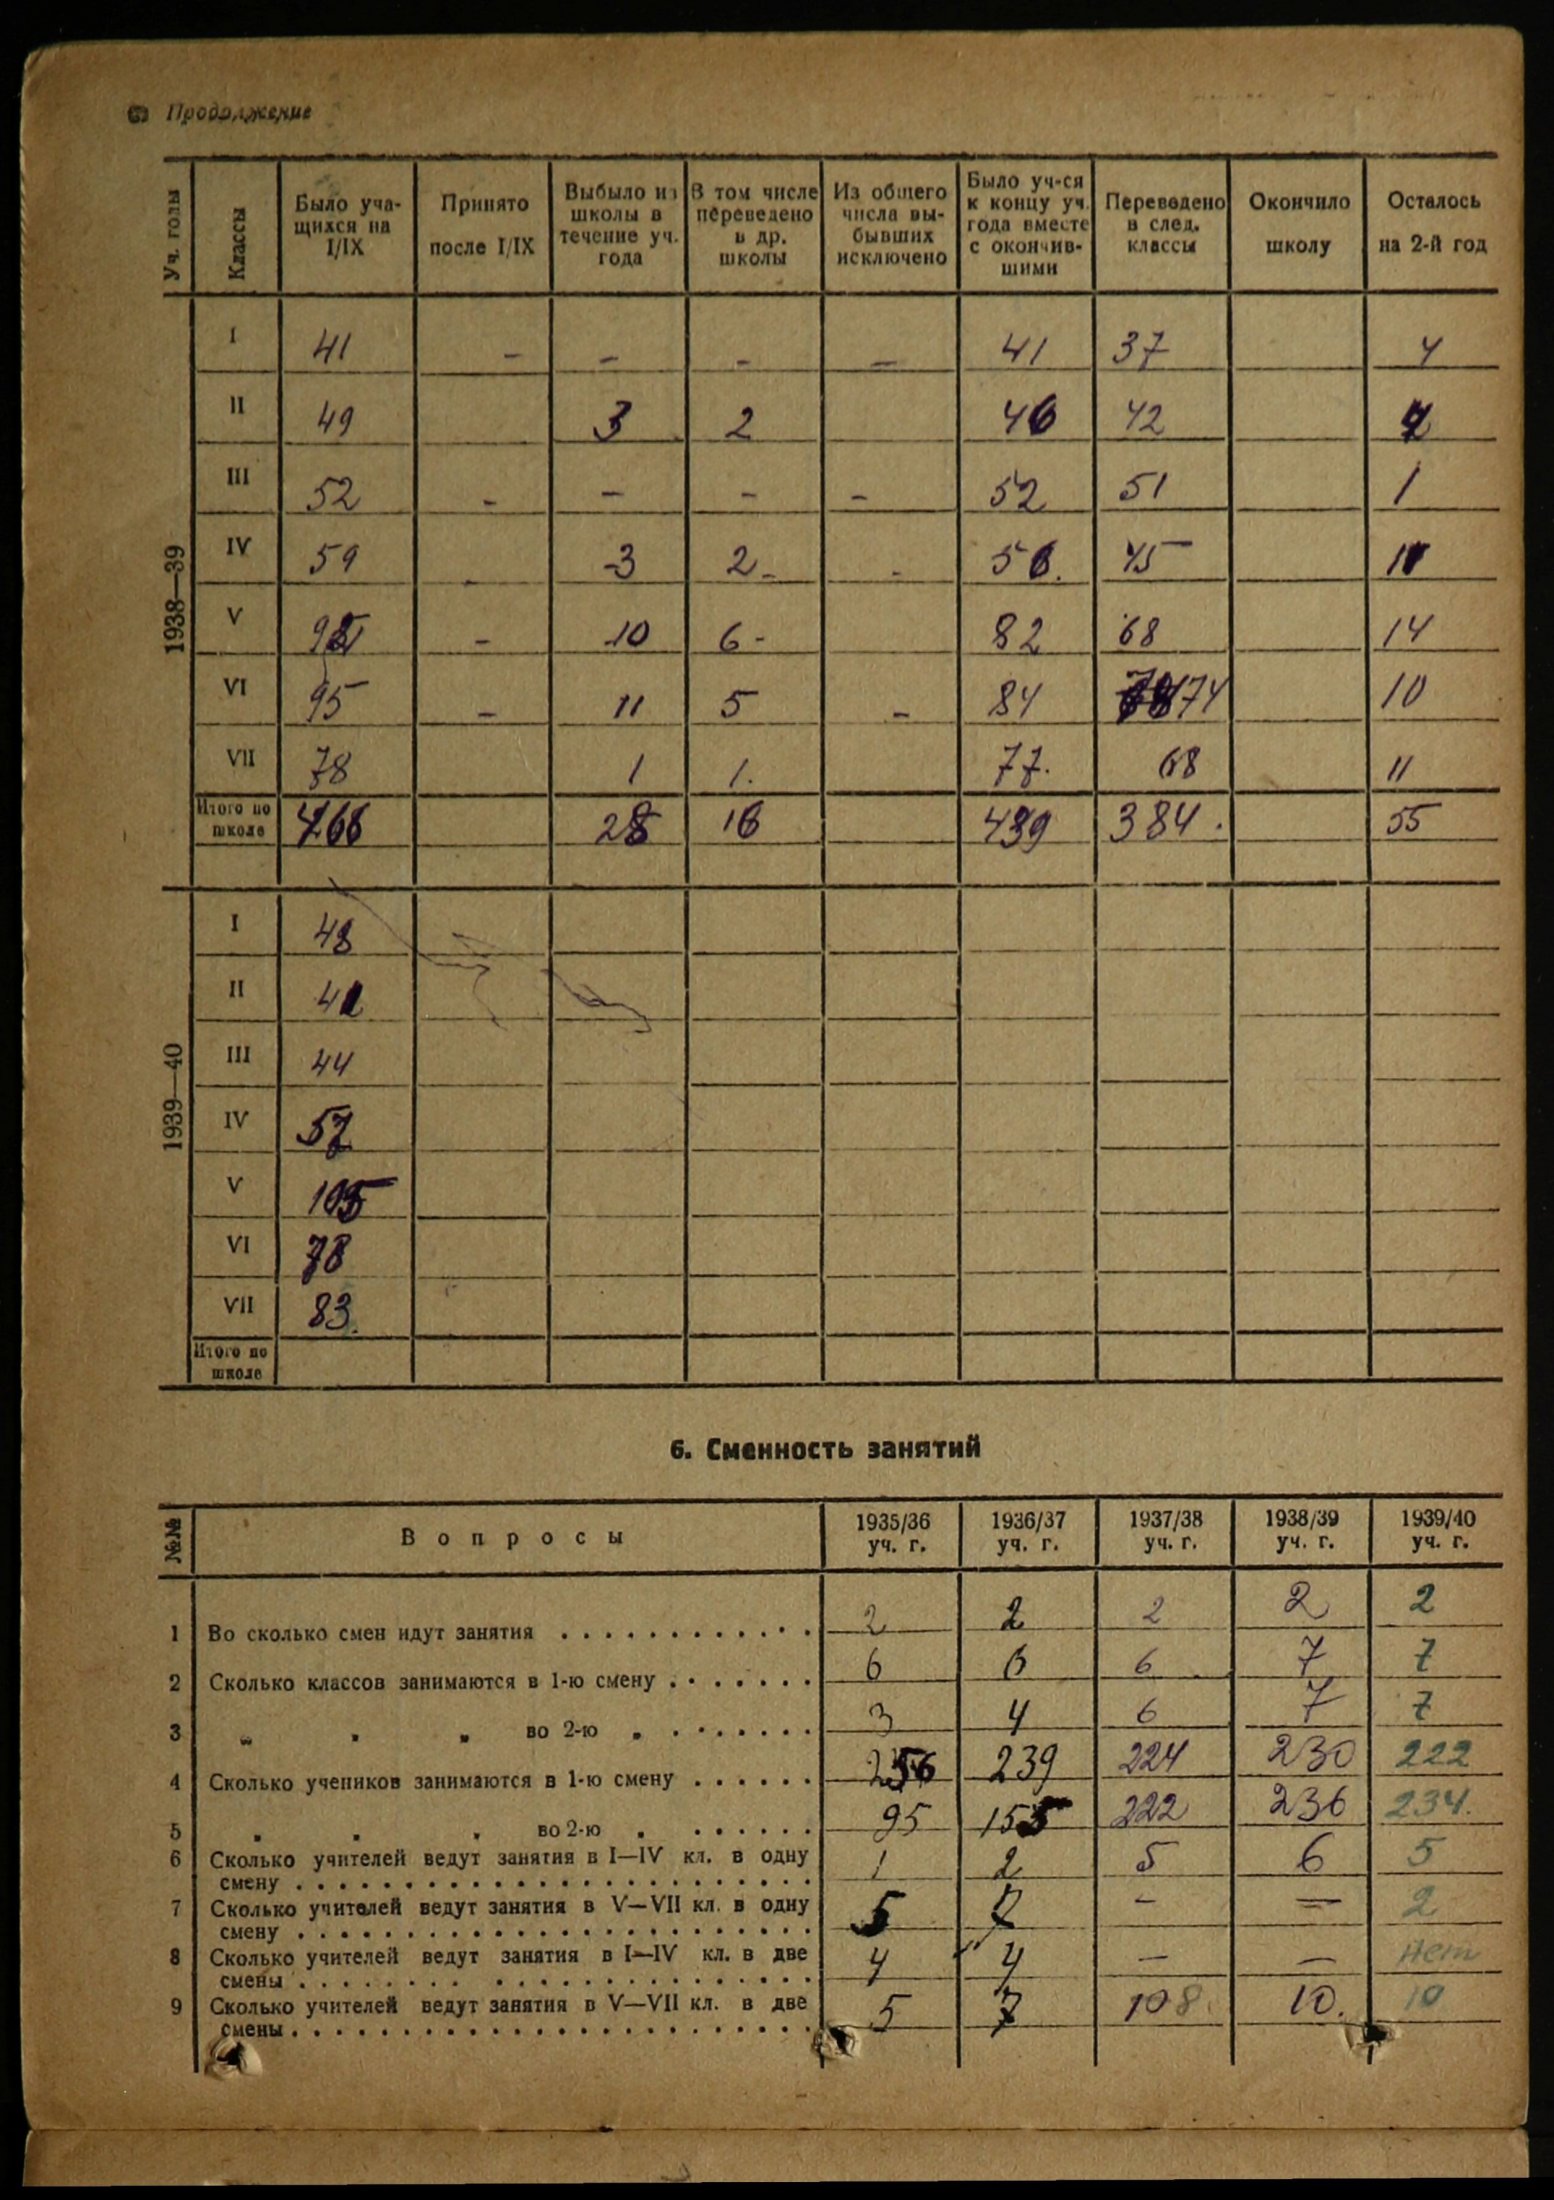 Продолжение
Уч. годы | Классы | Было учащихся на I/IX | Принято после I/IX | Выбыло из школы в течение уч. года | В том числе переведено в др. школы | Из общего числа выбывших исключено | Было уч-ся к концу уч. года вместе с окончившими | Переведено в след. классы | Окончило школу | Осталось на 2-й год
1938—39
I | 41 | - | - | - | - | 41 | 37 | | 4
II | 49 | | 3 | 2 | | 46 | 42 | |
III | 52 | - | - | - | - | 52 | 51 | | 1
IV | 59 | - | 3 | 2 - | - | 56. | 45 | | 11
V | 92 | - | 10 | 6 - | | 82 | 68 | | 14
VI | 95 | - | 11 | 5 | - | 84 | 74 | | 10
VII | 78 | | 1 | 1. | | 77. | 68 | | 11
Итого по школе | 466 | | 28 | 16 | | 439 | 384. | | 55
1939—40
I | 48
II |
III | 44
IV | 57
V | 105
VI | 78
VII | 83.
Итого по школе
6. Сменность занятий
№№ | Вопросы | 1935/36 уч. г. | 1936/37 уч. г. | 1937/38 уч. г. | 1938/39 уч. г. | 1939/40 уч. г.
1 Во сколько смен идут занятия | 2 | 2 | 2 | 2 | 2
2 Сколько классов занимаются в 1-ю смену | 6 | 6 | 6 | 7 | 7
3 " " " во 2-ю " | 3 | 4 | 6 | 7 | 7
4 Сколько учеников занимаются в 1-ю смену | 256 | 239 | 224 | 230 | 222
5 " " " во 2-ю " | 95 | 155 | 222 | 236 | 234.
6 Сколько учителей ведут занятия в I—IV кл. в одну
смену | 1 | 2 | 5 | 6 | 5
7 Сколько учителей ведут занятия в V—VII кл. в одну
смену | 5 | | - | - | 2
8 Сколько учителей ведут занятия в I—IV кл. в две
смены | 4 | 4 | - | - | нет
9 Сколько учителей ведут занятия в V—VII кл. в две
смены | 5 | 7 | 108. | 10. | 10